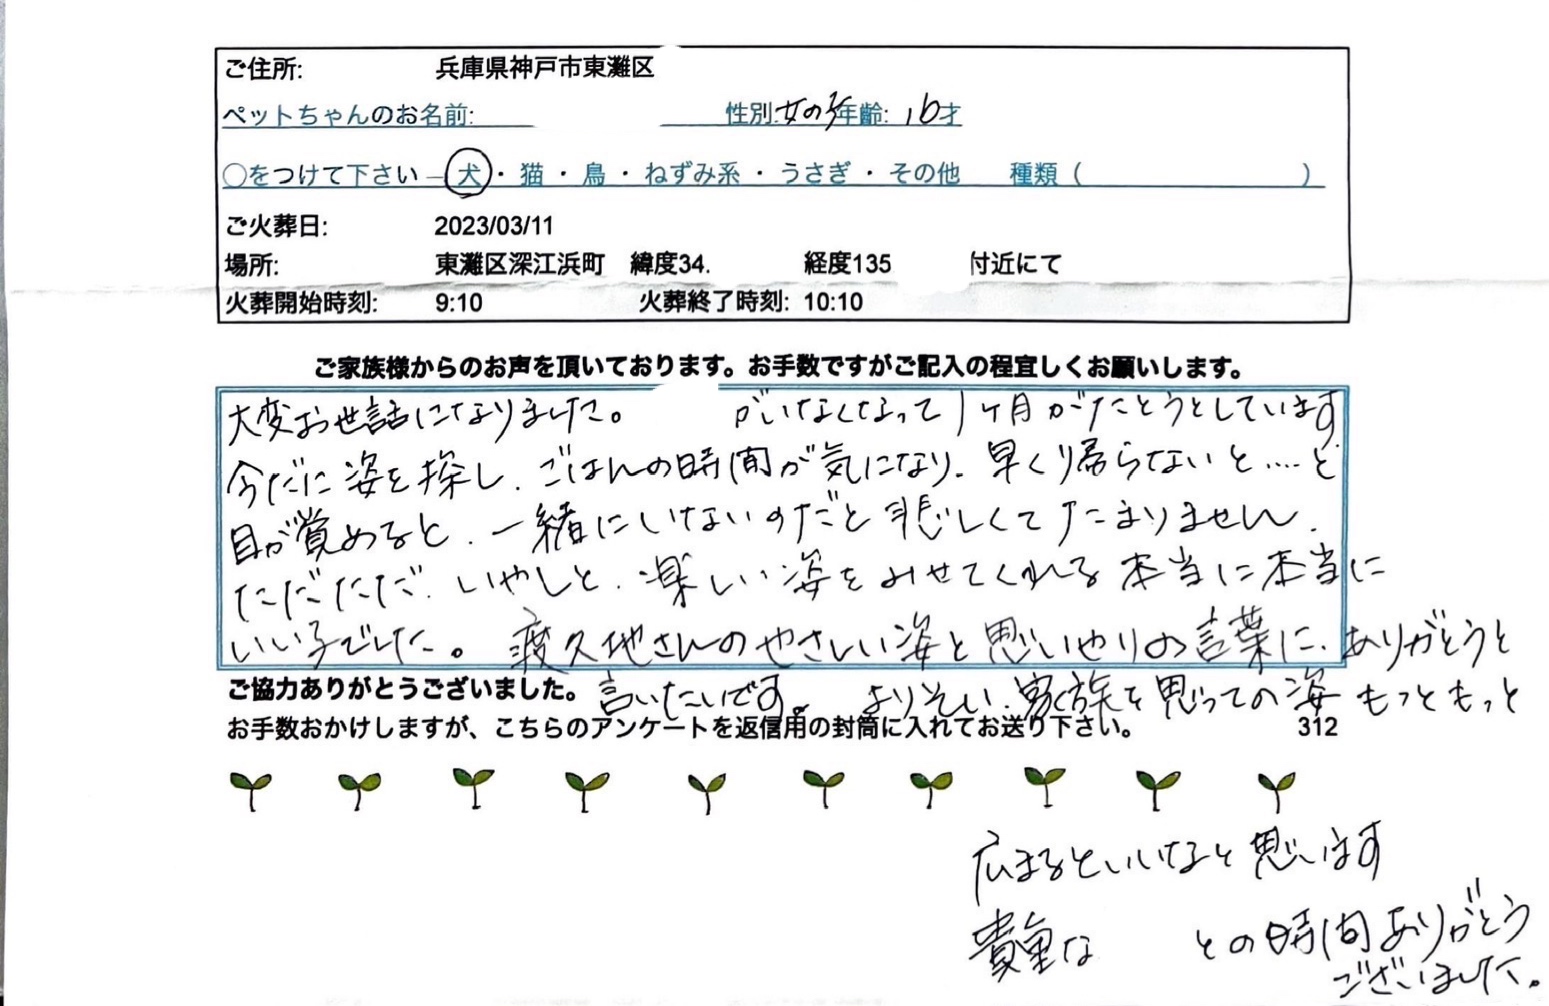 ご住所: 兵庫県神戸市東灘区
ペットちゃんのお名前: 性別:女の子年齢: 16才
○をつけて下さい – 犬・猫・鳥・ねずみ系・うさぎ・その他 種類( )
ご火葬日: 2023/03/11
場所: 東灘区深江浜町 緯度34. 経度135 付近にて
火葬開始時刻: 9:10 火葬終了時刻: 10:10
ご家族様からのお声を頂いております。お手数ですがご記入の程宜しくお願いします。
大変お世話になりました。 がいなくなって1ヶ月がたとうとしています
今だに姿を探し、ごはんの時間が気になり、早くり帰らないと....と
目が覚めると、一緒にいないのだと悲しくてたまりません、
ただただ、いやしと、楽しい姿をみせてくれる本当に本当に
いい子でした。渡久地さんのやさしい姿と思いやりの言葉に、ありがとうと
ご協力ありがとうございました。
言いたいです。よりそい、家族を思っての姿もっともっと
お手数おかけしますが、こちらのアンケートを返信用の封筒に入れてお送り下さい。 312
広まるといいなと思います
貴重な との時間ありがとう
ございました。